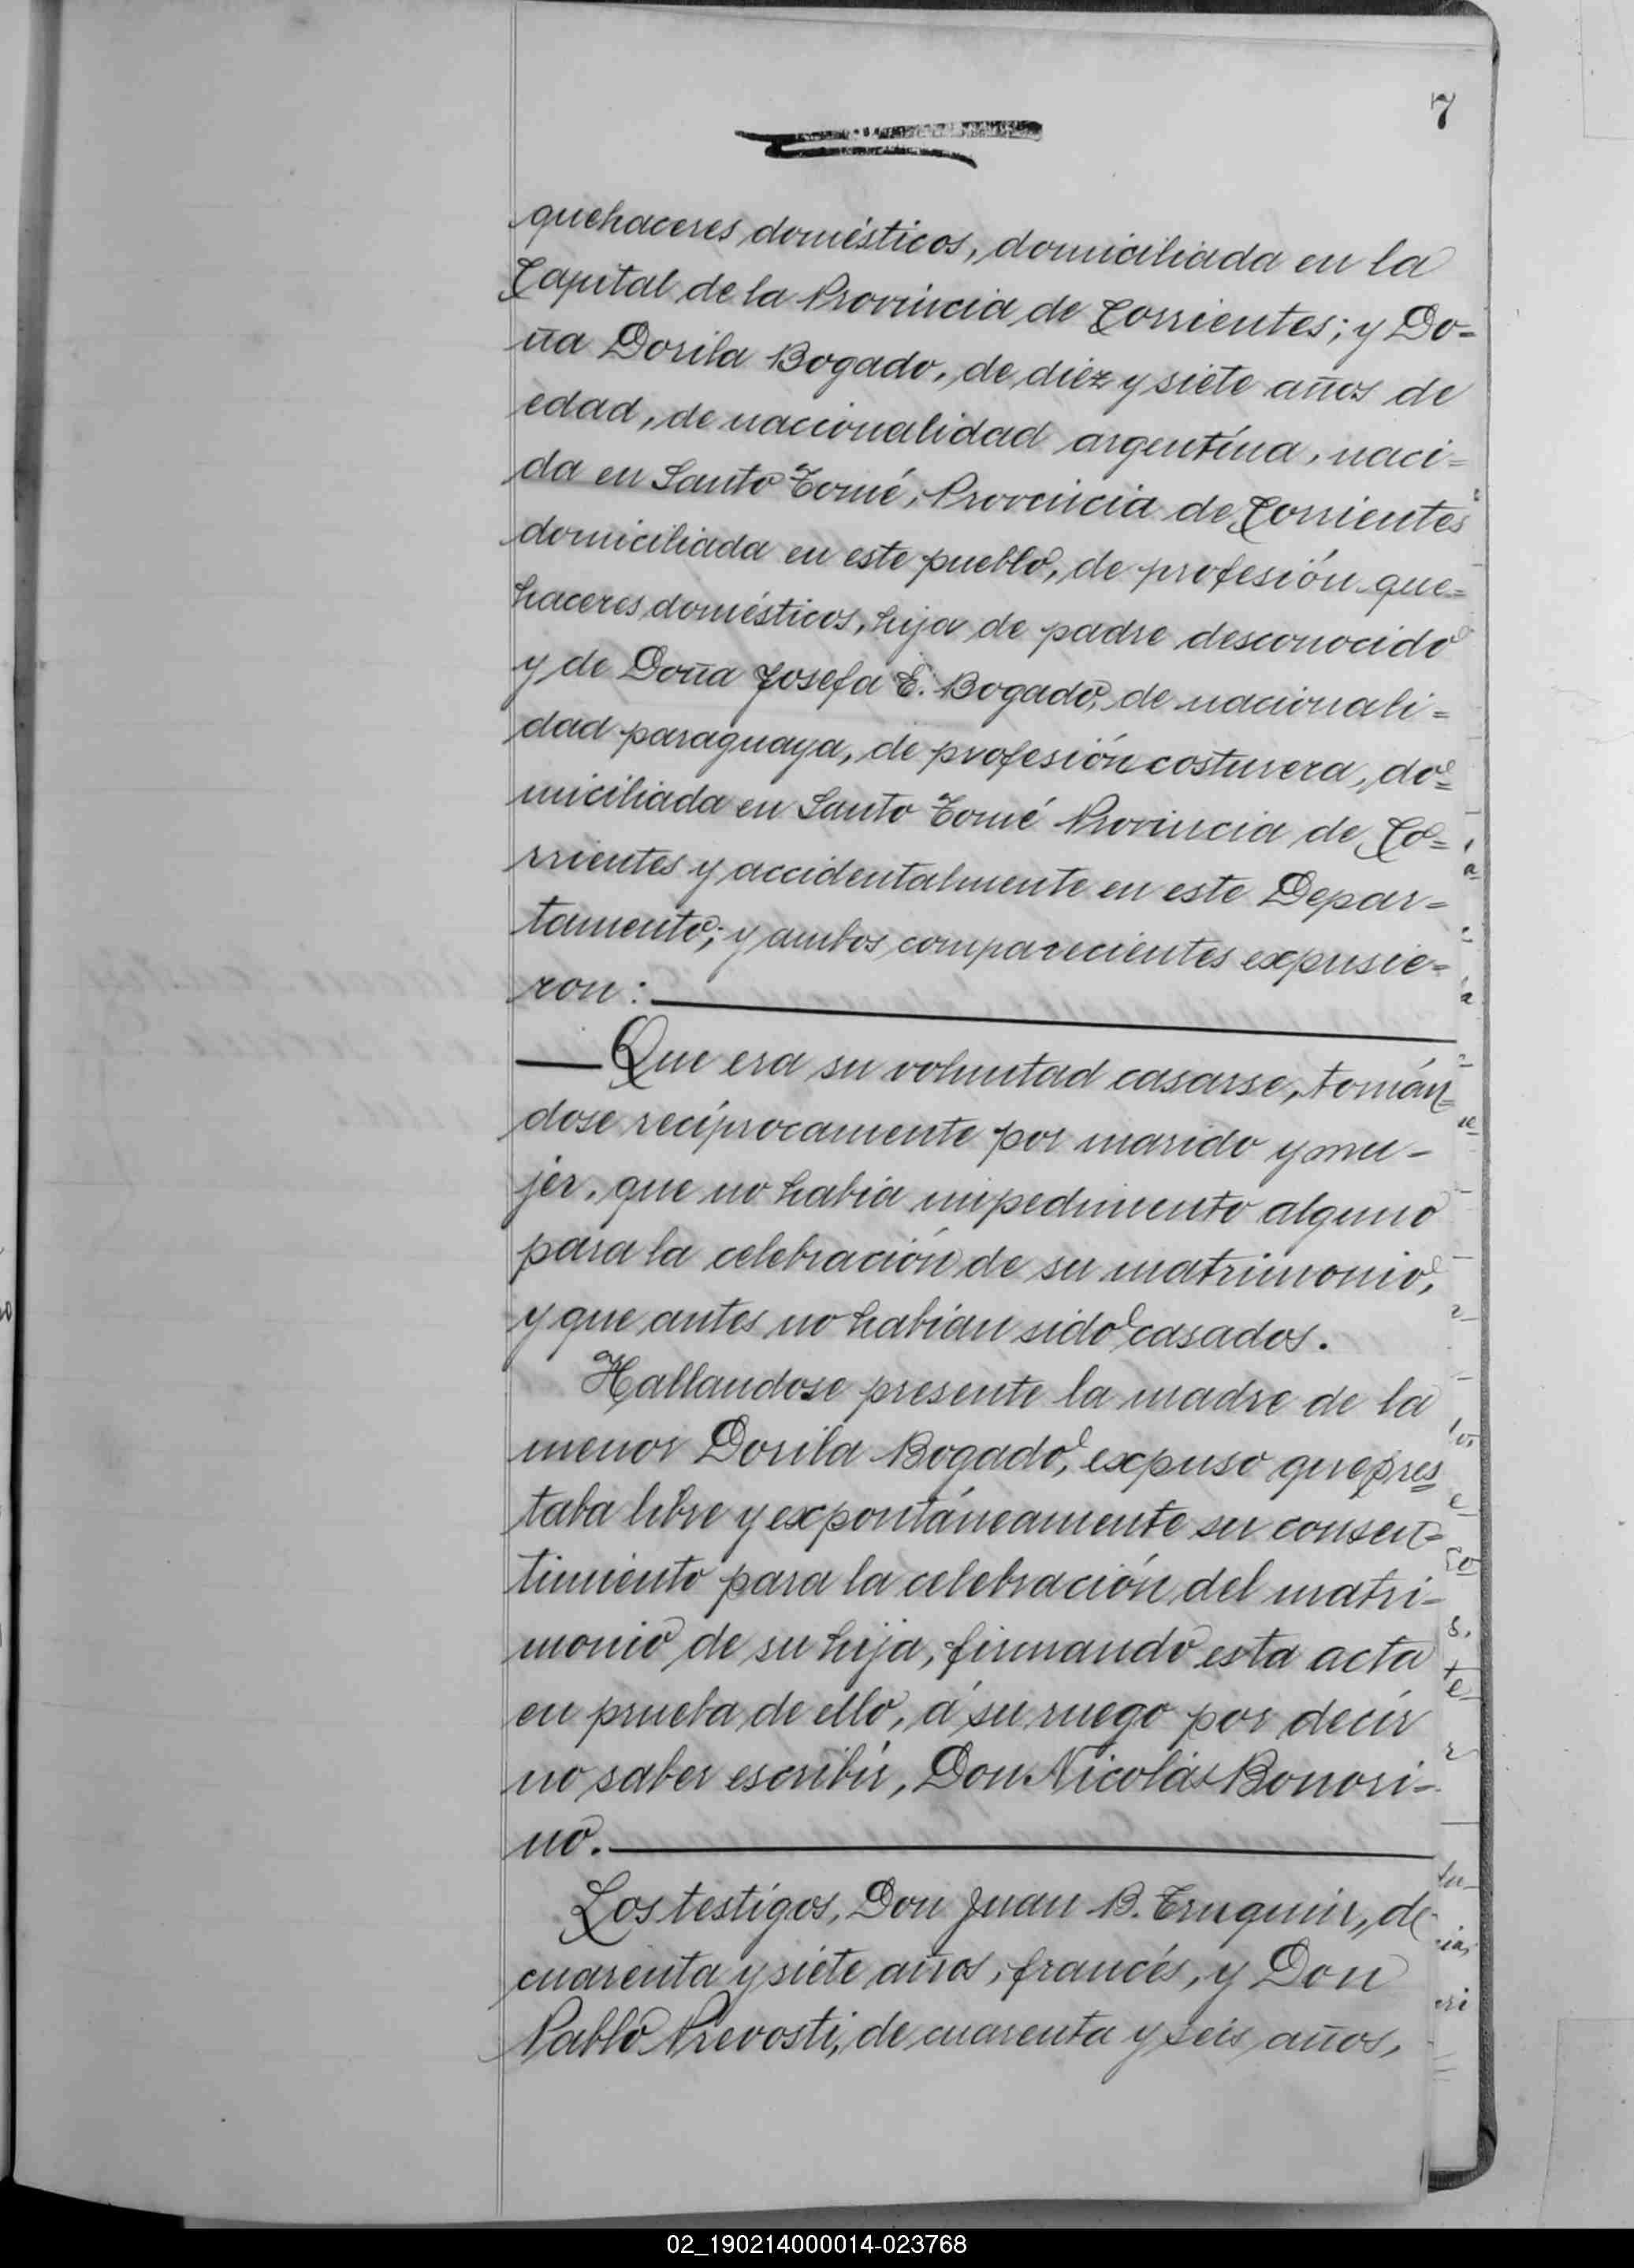 7
quehaceres domésticos, domiciliada en la
Capital de la Provincia de Corrientes; y Do=
ña Dorila Bogado, de diéz y siete años de
edad, de nacionalidad argentina, naci=
da en Santo Tomé, Provincia de Corrientes
domiciliada en este pueblo, de profesión que=
haceres domésticos, hija de padre desconocido
y de Doña Josefa E. Bogado, de nacionali=
dad paraguaya, de profesión costurera, do=
miciliada en Santo Tomé Provincia de Co=
rrientes y accidentalmente en este Depar=
tamento; y ambos comparecientes expusie=
ron:
Que era su voluntad casarse, tomán=
dose recíprocamente por marido y mu-
jer, que no había impedimento alguno
para la celebración de su matrimonio,
y que antes no habían sido casados.
Hallandose presente la madre de la
menor Dorila Bogado, expuso que pres
taba libre y expontáneamente su consen=
timiento para la celebración del matri-
monio de su hija, firmando esta acta
en prueba de ello, á su ruego por decir
no saber escribir, Don Nicolás Bonori-
no.
Los testigos, Don Juan B. Truquin, de
cuarenta y siete años, francés, y Don
Pablo Prevosti, de cuarenta y seis años,
02_190214000014-023768